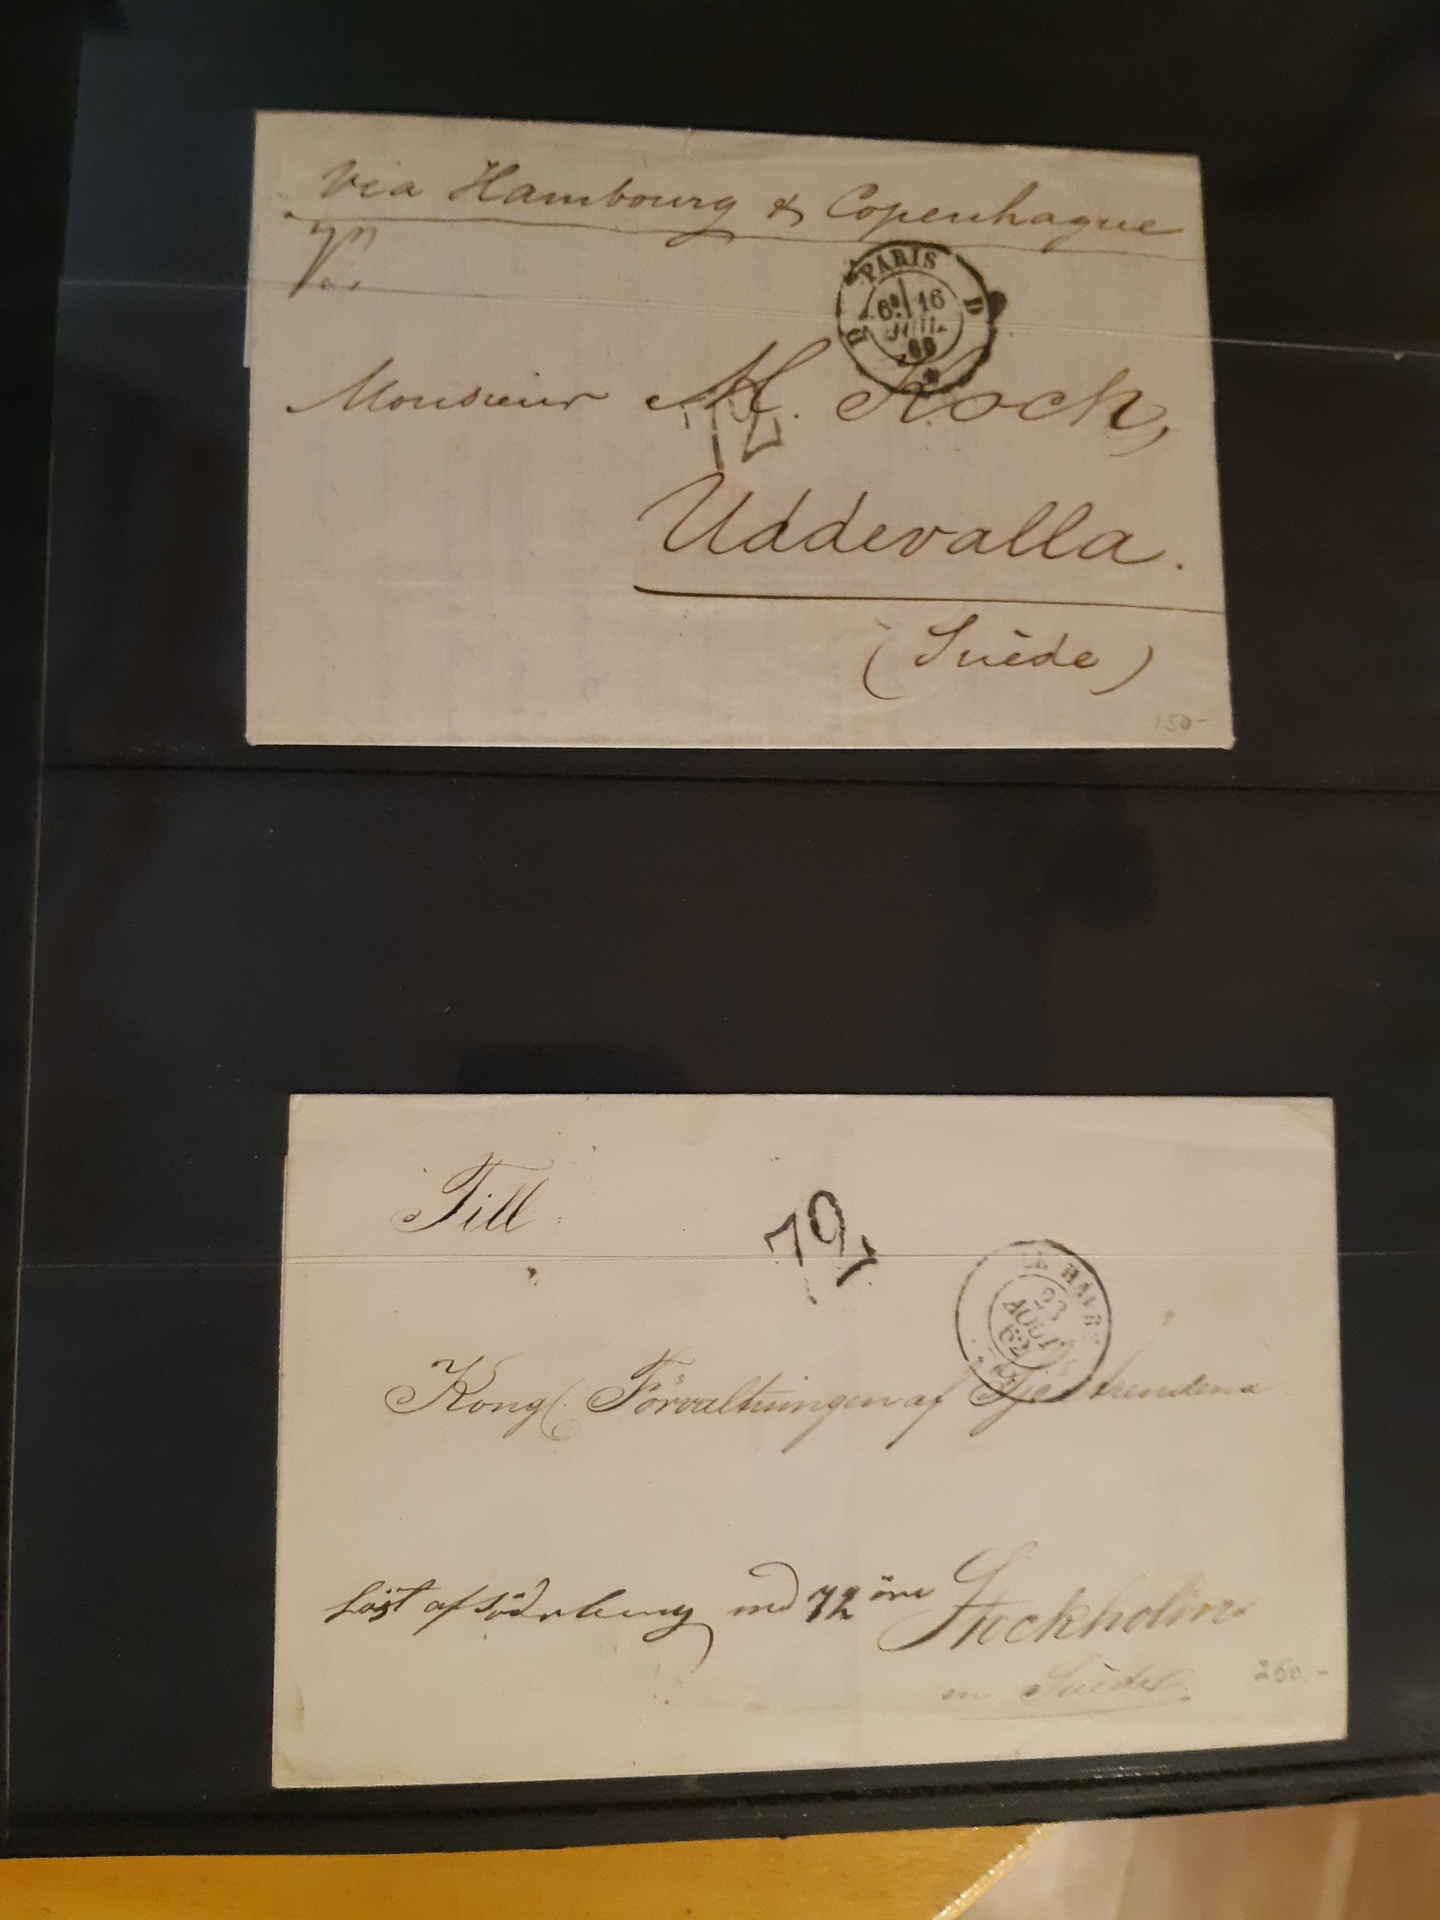 via Hambourg & Copenhague
72
PARIS
D D
6E 16
JUIL.
Monsieur M. Koch,
72
Uddevalla.
(Suède)
150-
Till
72
LE HAVRE
23
AOUT
62
Kongl. Förvaltningen af Sjöärendena
Löst af Söderberg med 72 öre
Stockholm
en Suède.
250.-